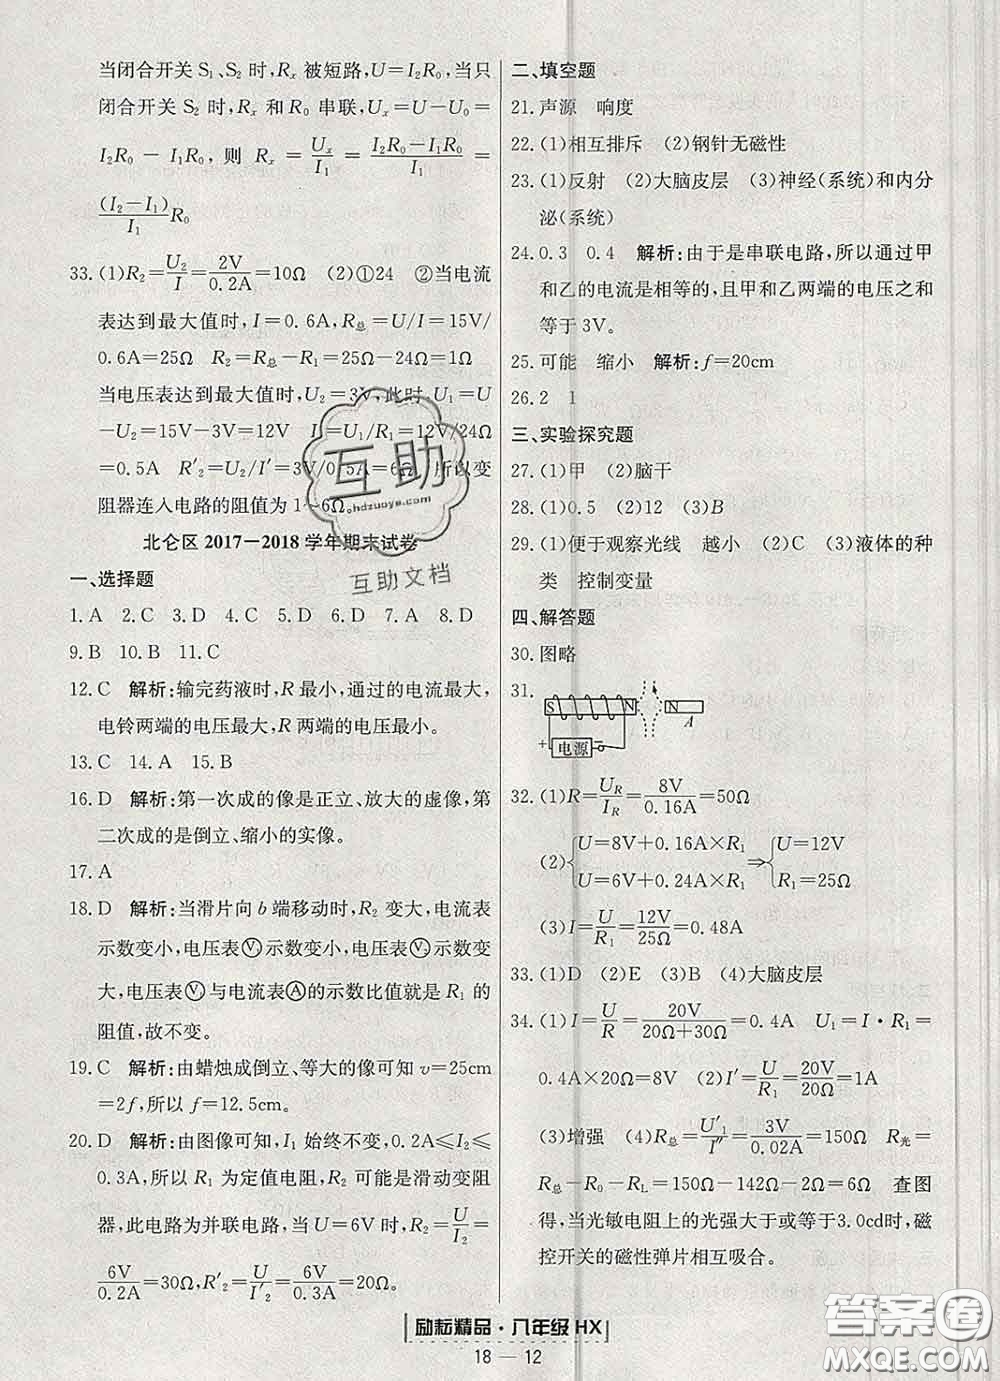 当闭合开关 S₁、S₂ 时,Rₓ 被短路,U=I₂R₀,当只
闭合开关 S₂ 时,Rₓ 和 R₀ 串联,Uₓ=U-U₀=
I₂R₀-I₁R₀, 则 Rₓ=Uₓ/I₁=(I₂R₀-I₁R₀)/I₁=
(I₂-I₁)/I₁ R₀
33.(1)R₂=U₂/I=2V/0.2A=10Ω (2)①24 ②当电流
表达到最大值时,I=0.6A,R总=U/I=15V/
0.6A=25Ω R₂=R总-R₁=25Ω-24Ω=1Ω
当电压表达到最大值时,U₂=3V,此时,U₁=U
-U₂=15V-3V=12V I=U₁/R₁=12V/24Ω
=0.5A R'₂=U₂/I'=3V/0.5A=6Ω,所以变
阻器连入电路的阻值为 1~6Ω。
北仑区 2017—2018 学年期末试卷
一、选择题
1.A 2.C 3.D 4.C 5.D 6.D 7.A 8.D
9.B 10.B 11.C
12.C 解析:输完药液时,R 最小,通过的电流最大,
电铃两端的电压最大,R 两端的电压最小。
13.C 14.A 15.B
16.D 解析:第一次成的像是正立、放大的虚像,第
二次成的是倒立、缩小的实像。
17.A
18.D 解析:当滑片向 b 端移动时,R₂ 变大,电流表
示数变小,电压表Ⓥ₁示数变小,电压表Ⓥ₂示数变
大,电压表Ⓥ₁与电流表Ⓐ的示数比值就是 R₁ 的
阻值,故不变。
19.C 解析:由蜡烛成倒立、等大的像可知 v=25cm
=2f,所以 f=12.5cm。
20.D 解析:由图像可知,I₁ 始终不变,0.2A≤I₂≤
0.3A,所以 R₁ 为定值电阻,R₂ 可能是滑动变阻
器,此电路为并联电路,当 U=6V 时,R₂=U/I₂=
6V/0.2A=30Ω,R'₂=U/I'₂=6V/0.3A=20Ω。
二、填空题
21.声源 响度
22.(1)相互排斥 (2)钢针无磁性
23.(1)反射 (2)大脑皮层 (3)神经(系统)和内分
泌(系统)
24.0.3 0.4 解析:由于是串联电路,所以通过甲
和乙的电流是相等的,且甲和乙两端的电压之和
等于 3V。
25.可能 缩小 解析:f=20cm
26.2 1
三、实验探究题
27.(1)甲 (2)脑干
28.(1)0.5 (2)12 (3)B
29.(1)便于观察光线 越小 (2)C (3)液体的种
类 控制变量
四、解答题
30.图略
31.
S N N A
+ 电源 -
32.(1)R=U_R/I_R=8V/0.16A=50Ω
(2){U=8V+0.16A×R₁ ⇒ {U=12V
U=6V+0.24A×R₁ R₁=25Ω
(3)I=U/R₁=12V/25Ω=0.48A
33.(1)D (2)E (3)B (4)大脑皮层
34.(1)I=U/R=20V/(20Ω+30Ω)=0.4A U₁=I·R₁=
0.4A×20Ω=8V (2)I'=U/R₁=20V/20Ω=1A
(3)增强 (4)R总=U'₁/I''=3V/0.02A=150Ω R光=
R总-R₀-R_L=150Ω-142Ω-2Ω=6Ω 查图
得,当光敏电阻上的光强大于或等于3.0cd时,磁
控开关的磁性弹片相互吸合。
励耘精品·八年级 HX
18 — 12
互助
ohdzuoye.com
互助文档
答案圈
MXQE.COM